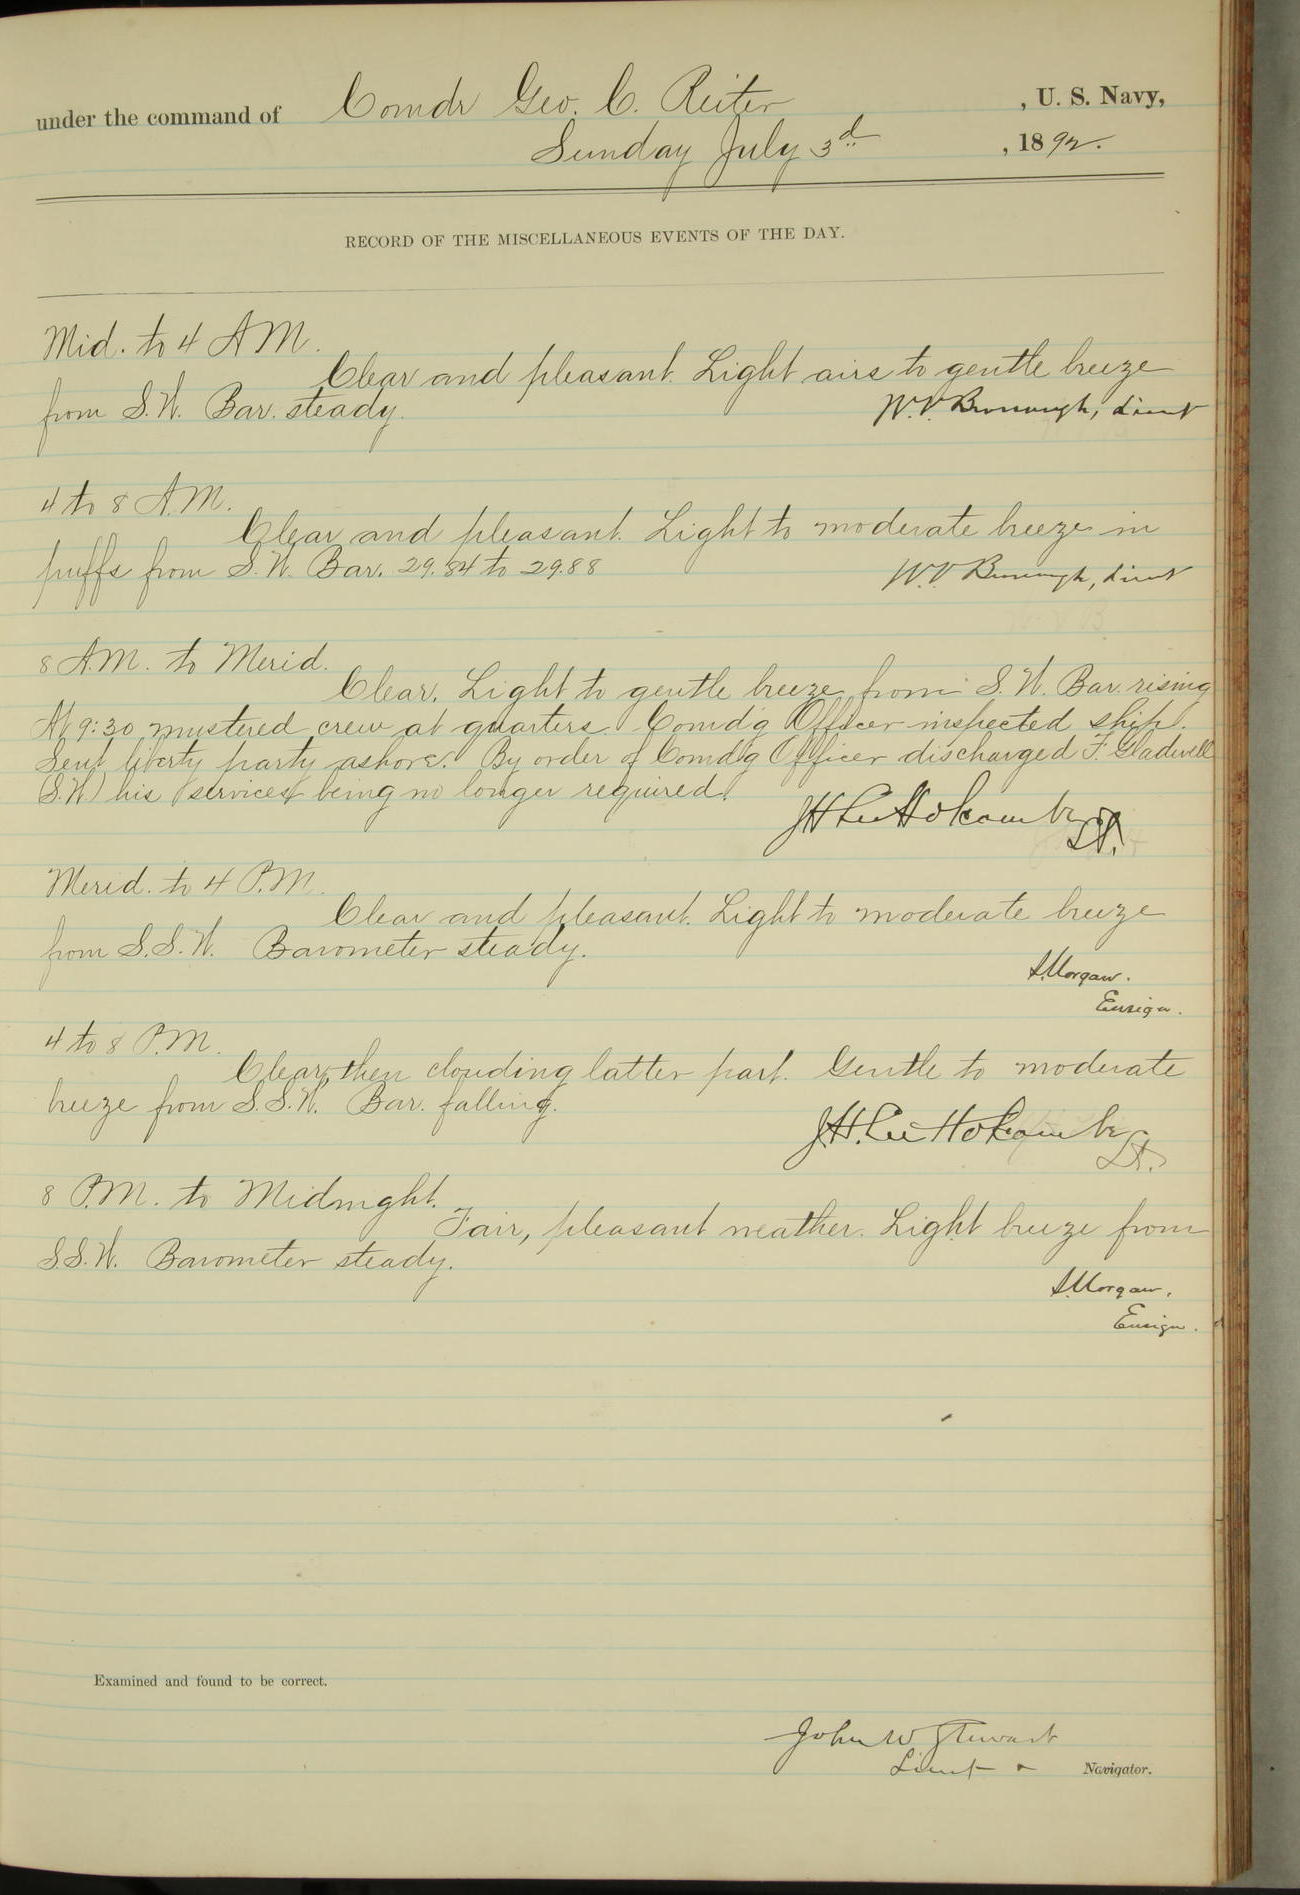 under the command of Comdr Geo. C. Reiter , U. S. Navy,
Sunday July 3d , 1892.
RECORD OF THE MISCELLANEOUS EVENTS OF THE DAY.
Mid. to 4 A M.
Clear and pleasant. Light airs to gentle breeze
from S.W. Bar. steady.
W.V. Bronaugh, Lieut
4 to 8 A.M.
Clear and pleasant. Light to moderate breeze in
puffs from S.W. Bar. 29.84 to 29.88
W.V. Bronaugh, Lieut
8 A.M. to Merid.
Clear. Light to gentle breeze from S.W. Bar. rising
At 9:30 mustered crew at quarters. Comd'g Officer inspected ship.
Sent liberty party ashore. By order of Comd'g Officer discharged F. Gladwell
(S.W) his services being no longer required.
JH Lee Holcombe
Lt.
Merid. to 4 P.M.
Clear and pleasant. Light to moderate breeze
from S.S.W. Barometer steady.
Morgan.
Ensign.
4 to 8 P.M.
Clear, then clouding latter part. Gentle to moderate
breeze from S.S.W. Bar. falling.
J.H. Lee Holcombe
Lt.
8 P.M. to Midnight.
Fair, pleasant weather. Light breeze from
S.S.W. Barometer steady.
Morgan.
Ensign.
Examined and found to be correct.
John W Stewart
Lieut Navigator.